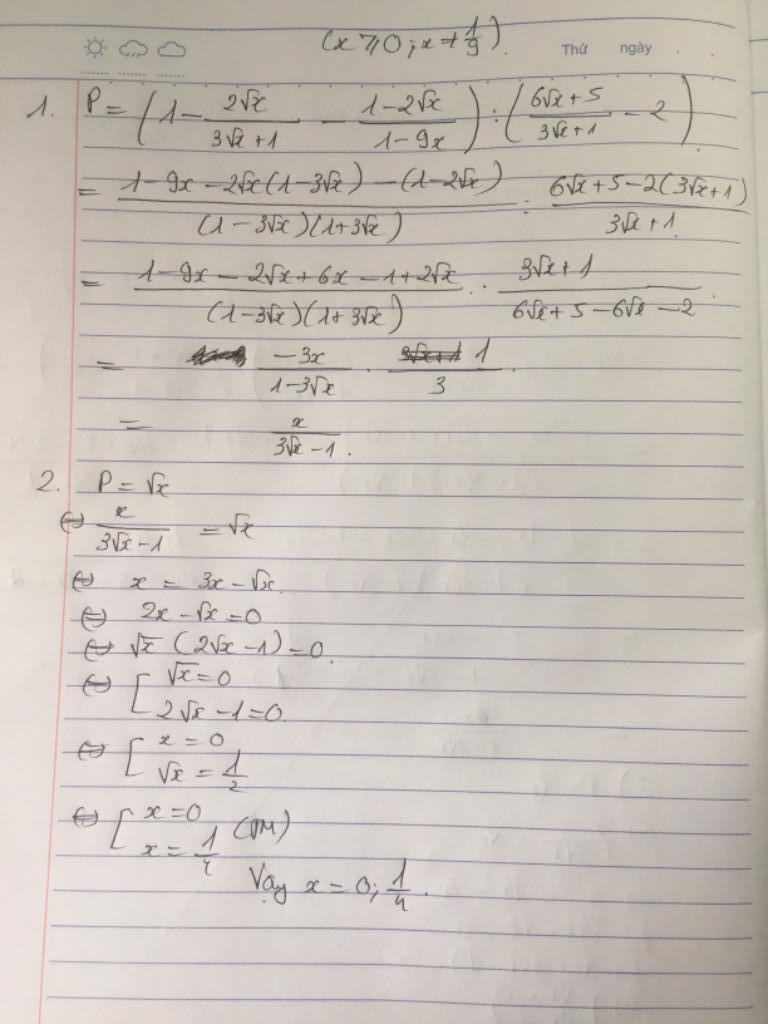 (x ⩾ 0 ; x ≠ 1/9).
Thứ ngày
1. P = (1 - 2√x/(3√x+1) - (1-2√x)/(1-9x)) : ((6√x+5)/(3√x+1) - 2)
= (1-9x-2√x(1-3√x)-(1-2√x))/((1-3√x)(1+3√x)) : (6√x+5-2(3√x+1))/(3√x+1)
= (1-9x-2√x+6x-1+2√x)/((1-3√x)(1+3√x)) . (3√x+1)/(6√x+5-6√x-2)
= (-3x)/(1-3√x) . 1/3
= x/(3√x-1).
2. P = √x
⇔ x/(3√x-1) = √x
⇔ x = 3x - √x
⇔ 2x - √x = 0
⇔ √x (2√x - 1) = 0
⇔ [ √x = 0
2√x - 1 = 0
⇔ [ x = 0
√x = 1/2
⇔ [ x = 0
x = 1/4 (TM)
Vậy x = 0; 1/4.